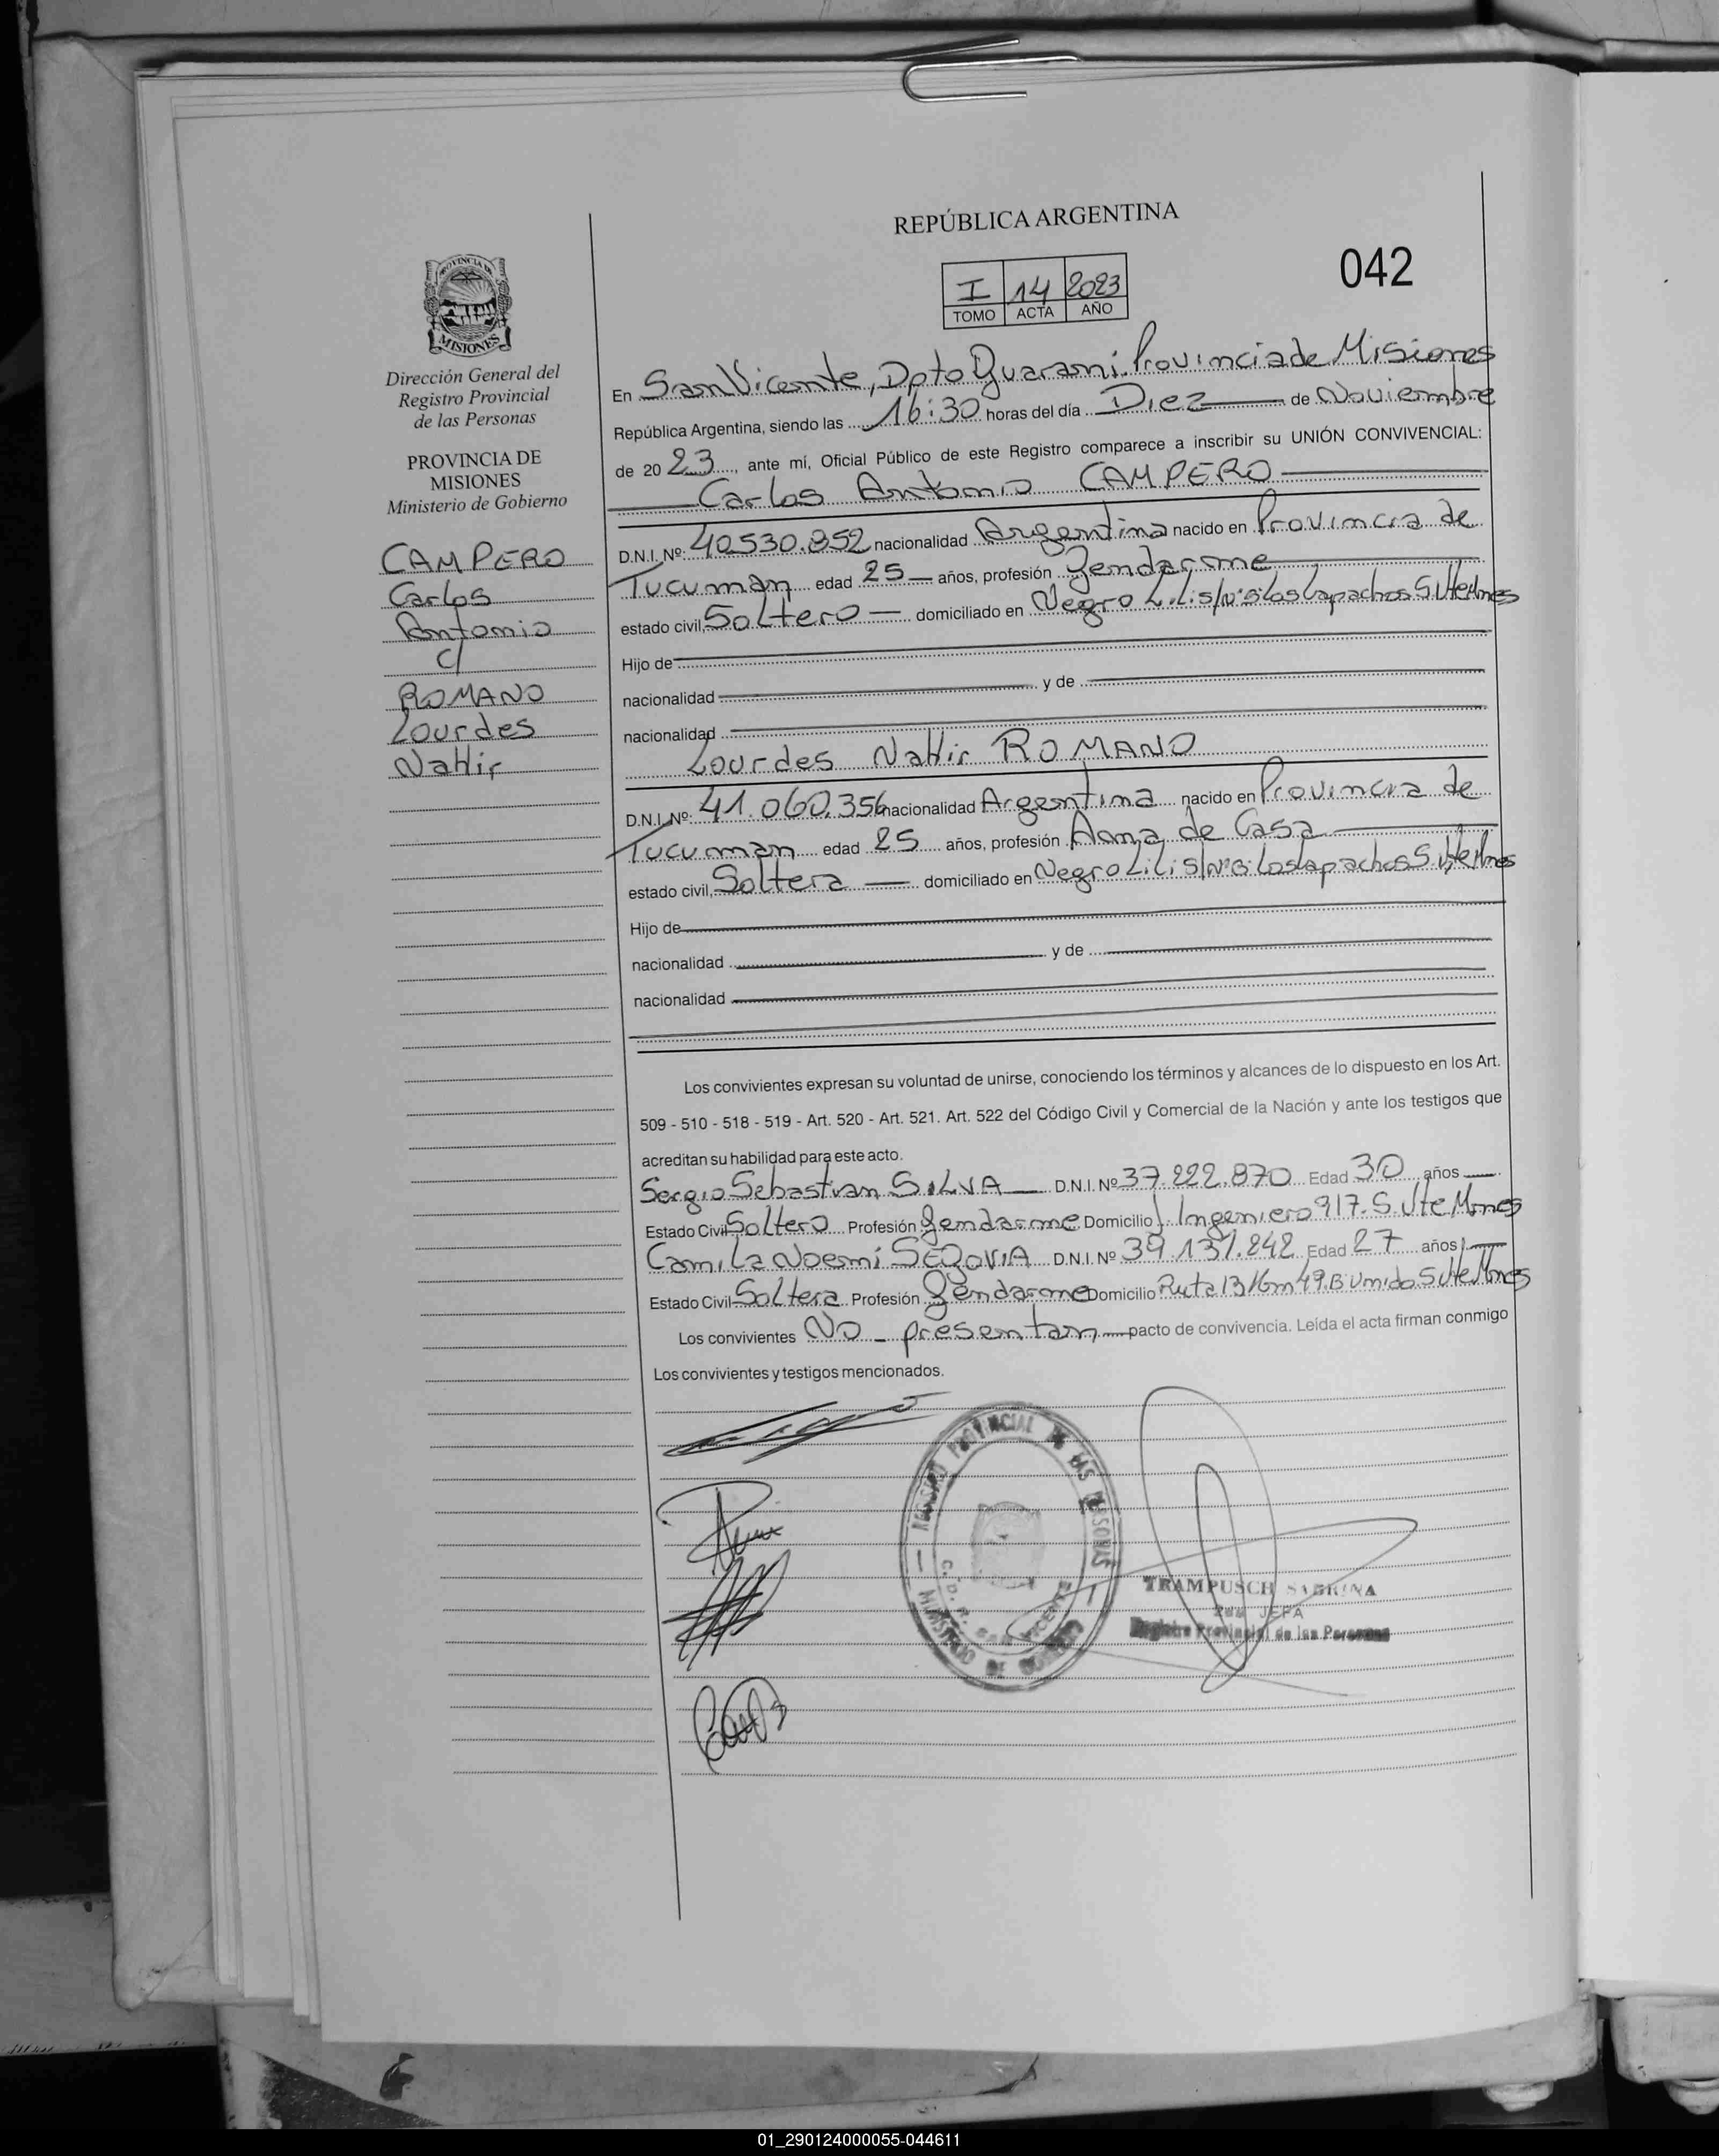 REPÚBLICA ARGENTINA
042
I 14 2023
TOMO ACTA AÑO
PROVINCIA DE
MISIONES
Dirección General del
Registro Provincial
de las Personas
PROVINCIA DE
MISIONES
Ministerio de Gobierno
CAMPERO
Carlos
Antonio
c/
ROMANO
Lourdes
Nahir
En San Vicente, Dpto Guaraní. Provincia de Misiones
República Argentina, siendo las 16:30 horas del día Diez de Noviembre
de 20 23, ante mí, Oficial Público de este Registro comparece a inscribir su UNIÓN CONVIVENCIAL:
Carlos Antonio CAMPERO
D.N.I. Nº: 40.530.852 nacionalidad Argentina nacido en Provincia de
Tucumán edad 25 años, profesión Gendarme
estado civil, Soltero domiciliado en Negro Lili s/nº B: Los Lapachos S. Vte Mnes
Hijo de
nacionalidad y de
nacionalidad
Lourdes Nahir ROMANO
D.N.I. Nº: 41.060.356 nacionalidad Argentina nacido en Provincia de
Tucumán edad 25 años, profesión Ama de Casa
estado civil, Soltera domiciliado en Negro Lili s/nº B: Los Lapachos S. Vte Mnes
Hijo de
nacionalidad y de
nacionalidad
Los convivientes expresan su voluntad de unirse, conociendo los términos y alcances de lo dispuesto en los Art.
509 - 510 - 518 - 519 - Art. 520 - Art. 521. Art. 522 del Código Civil y Comercial de la Nación y ante los testigos que
acreditan su habilidad para este acto.
Sergio Sebastian SILVA D.N.I. Nº 37.222.870 Edad 30 años
Estado Civil Soltero Profesión Gendarme Domicilio Ingeniero 917. S. Vte Mnes
Camila Noemí SEGOVIA D.N.I. Nº 39.137.242 Edad 27 años
Estado Civil Soltera Profesión Gendarme Domicilio Ruta 13 Km 49. B Unido S. Vte Mnes
Los convivientes No presentan pacto de convivencia. Leída el acta firman conmigo
Los convivientes y testigos mencionados.
REGISTRO PROVINCIAL DE LAS PERSONAS
MINISTERIO DE GOBIERNO
TRAMPUSCH SABRINA
2da JEFA
Registro Provincial de las Personas
01_290124000055-044611